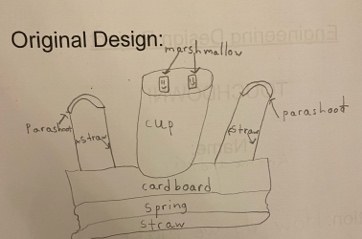 Original Design:
marshmallow
Parashoot
straw
cup
straw
parashoot
cardboard
Spring
Straw